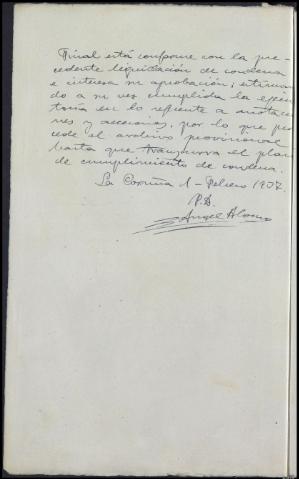 Fiscal está conforme con la pre-
cedente liquidación de condena
e interesa su aprobación; estiman-
do a su vez cumplida la ejecu-
toria en lo referente a anotacio-
nes y accesorias, por lo que pro-
cede el archivo provisional
hasta que transcurra el plazo
de cumplimiento de condena.
La Coruña 1 - Febrero 1937.
P.D.
Angel Alonso